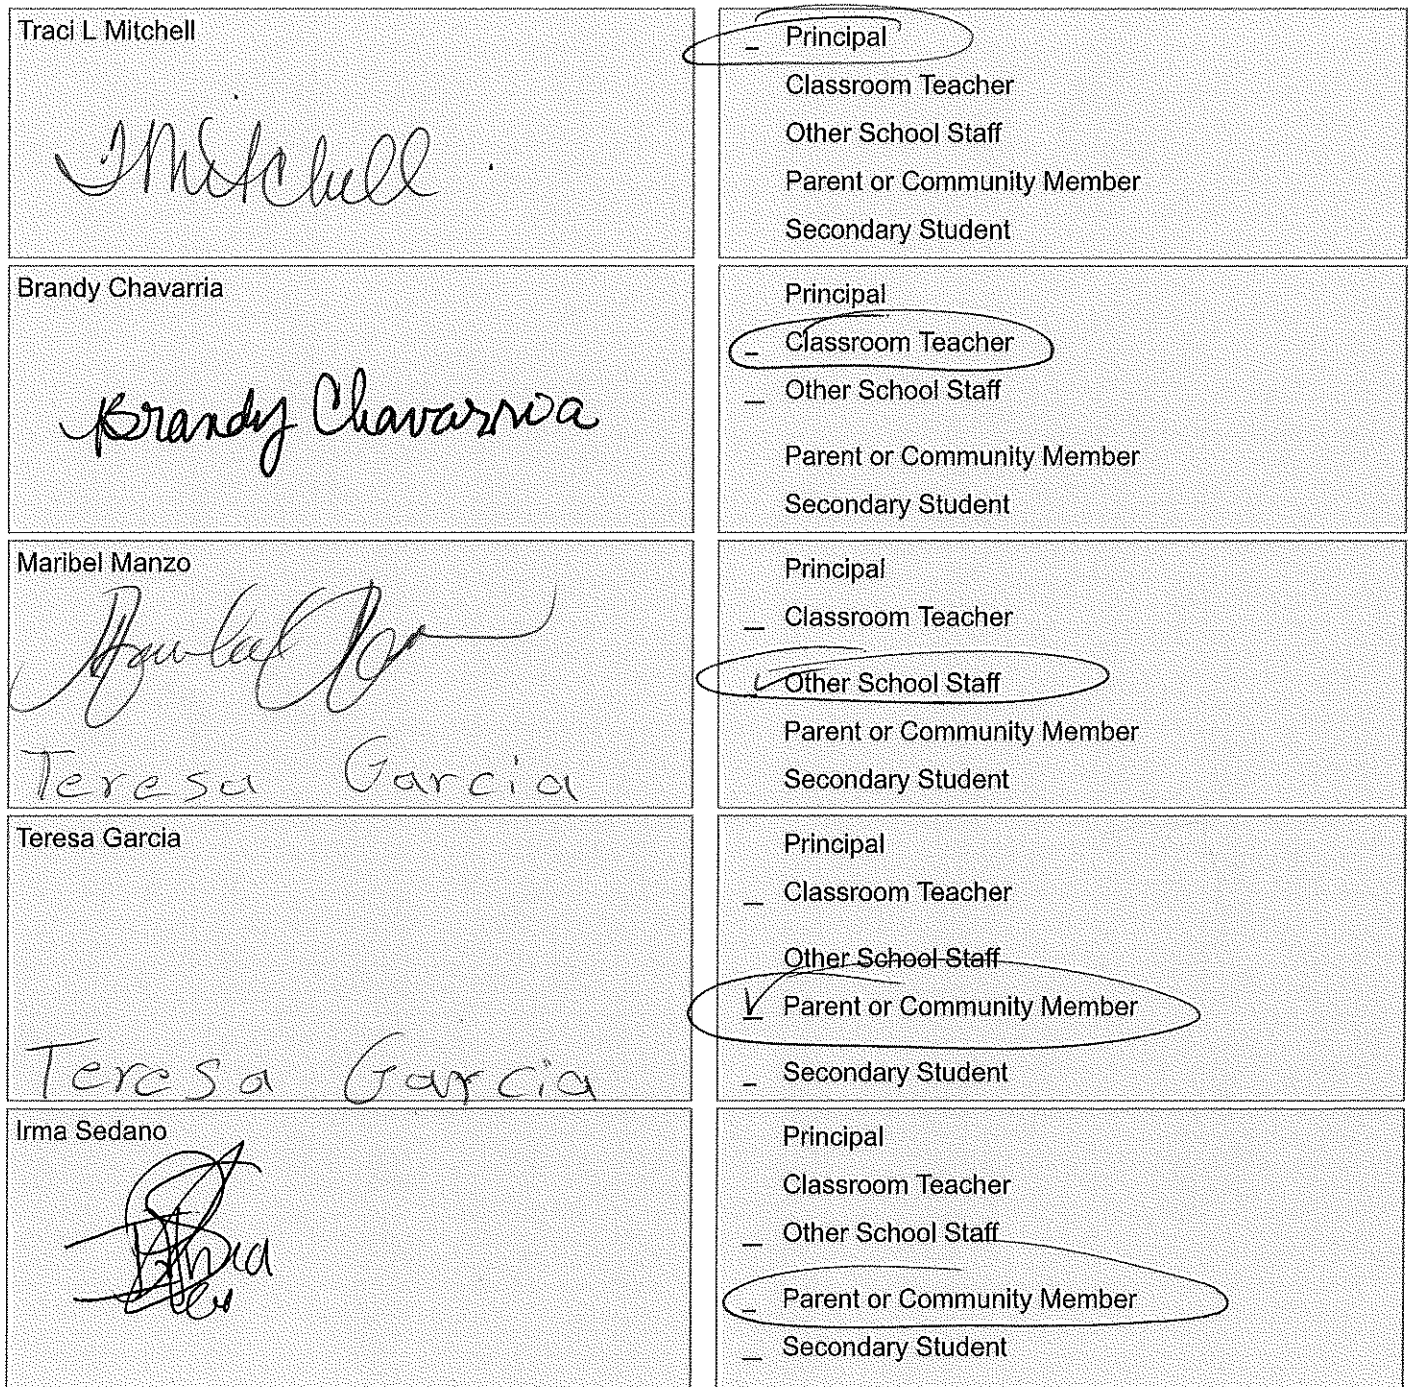 Traci L Mitchell
TMitchell
_ Principal
Classroom Teacher
Other School Staff
Parent or Community Member
Secondary Student
Brandy Chavarria
Brandy Chavarria
Principal
_ Classroom Teacher
_ Other School Staff
Parent or Community Member
Secondary Student
Maribel Manzo
Teresa Garcia
Principal
_ Classroom Teacher
_ Other School Staff
Parent or Community Member
Secondary Student
Teresa Garcia
Teresa Garcia
Principal
_ Classroom Teacher
Other School Staff
_ Parent or Community Member
_ Secondary Student
Irma Sedano
Principal
Classroom Teacher
_ Other School Staff
_ Parent or Community Member
_ Secondary Student